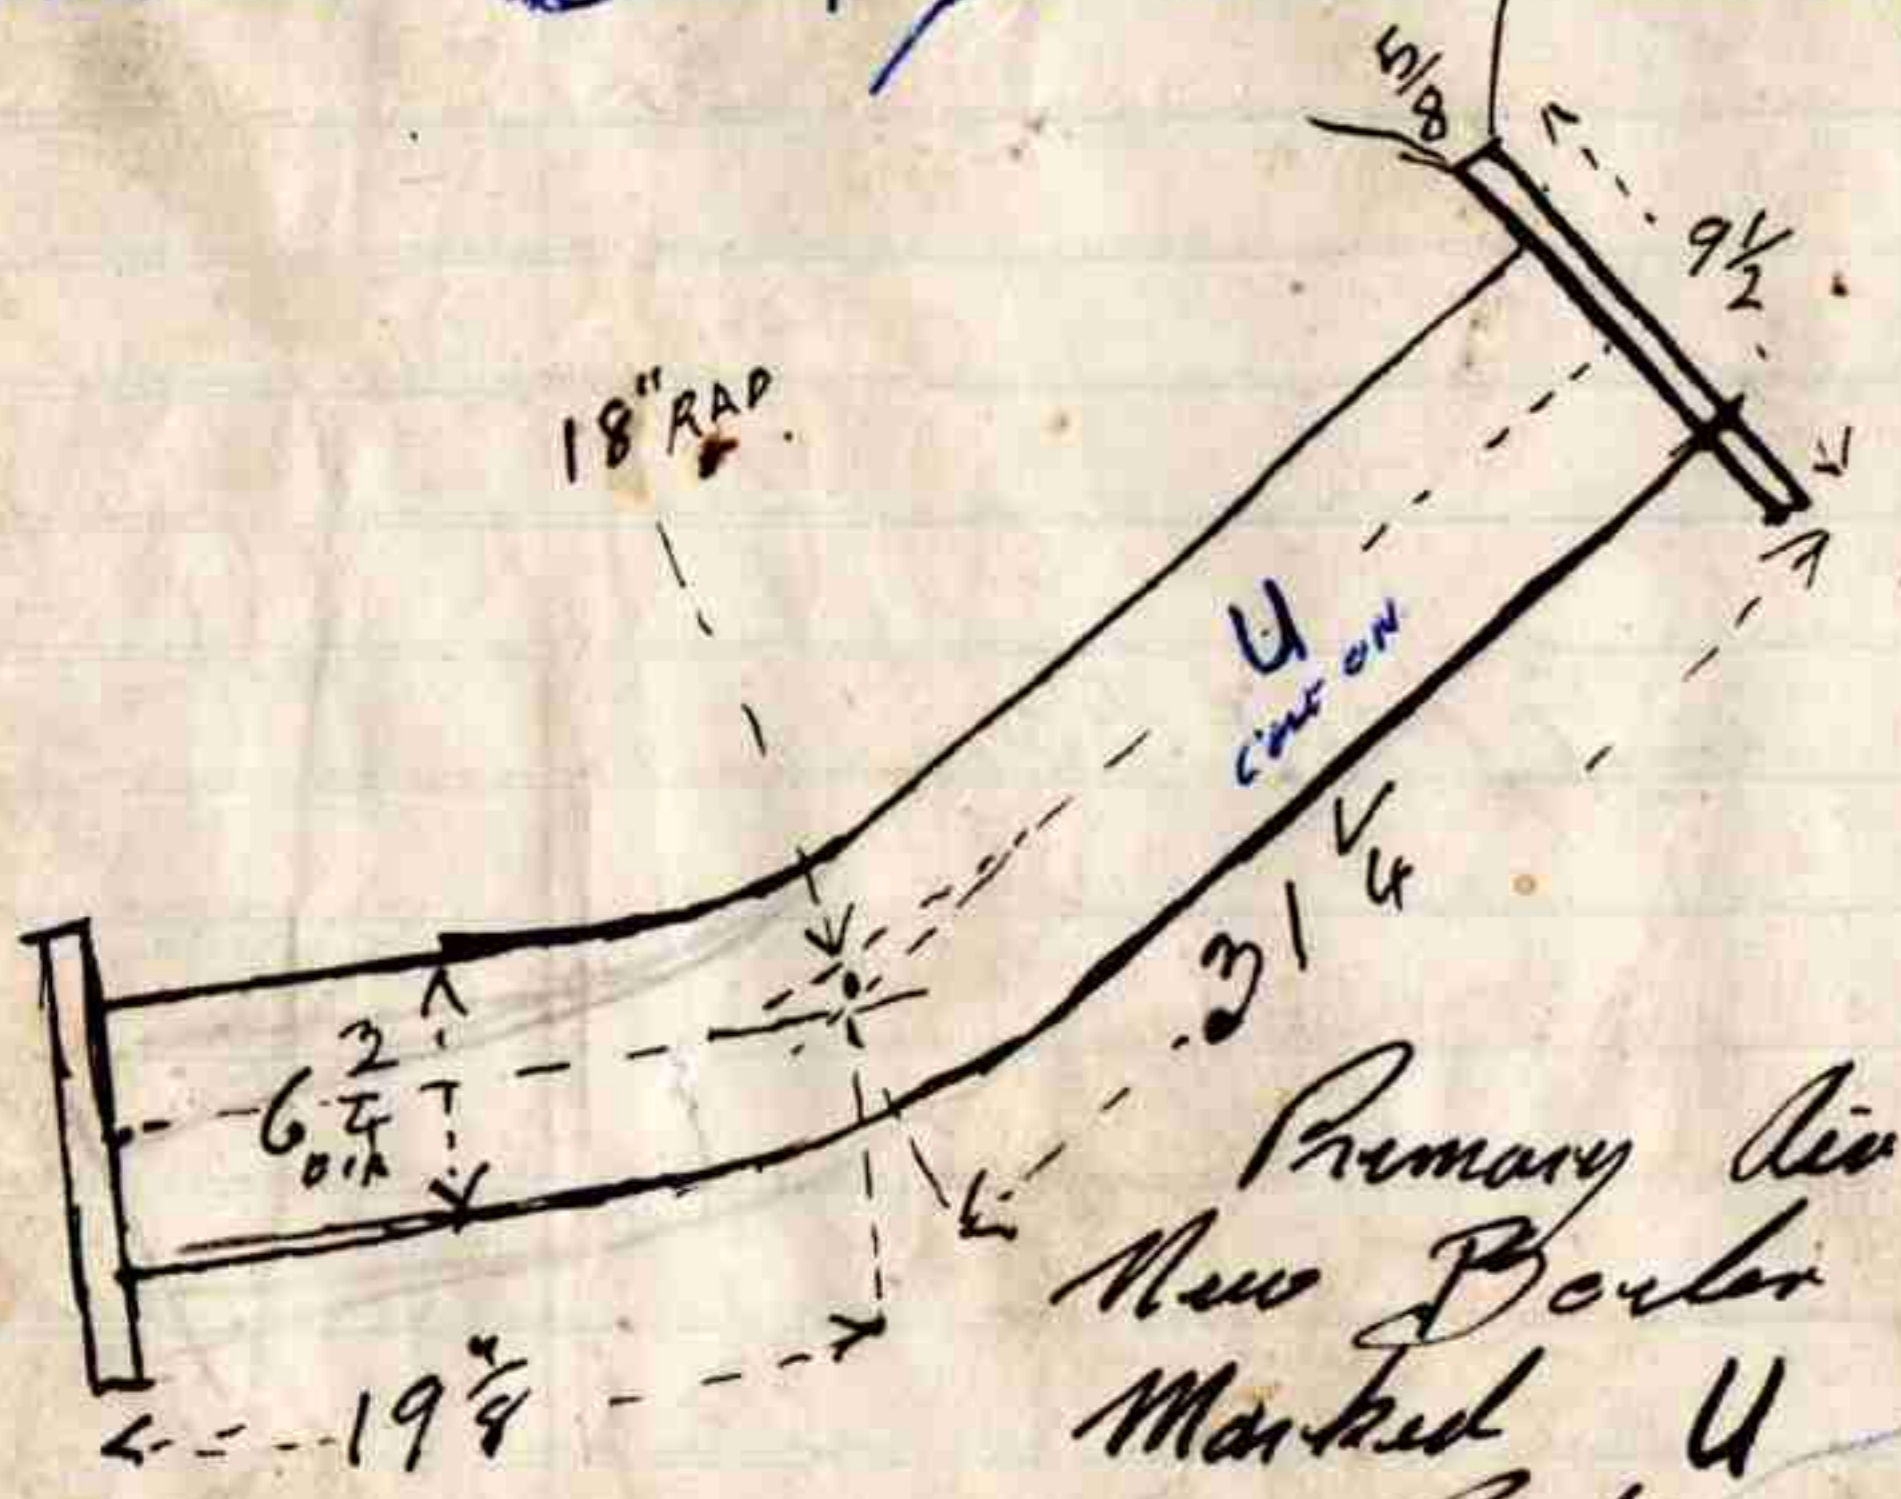 5/8
9 1/2
18" RAD.
U
ON
31 1/4
6 3/4
DIA
19 /8
Primary Air
New Boiler
Marked U